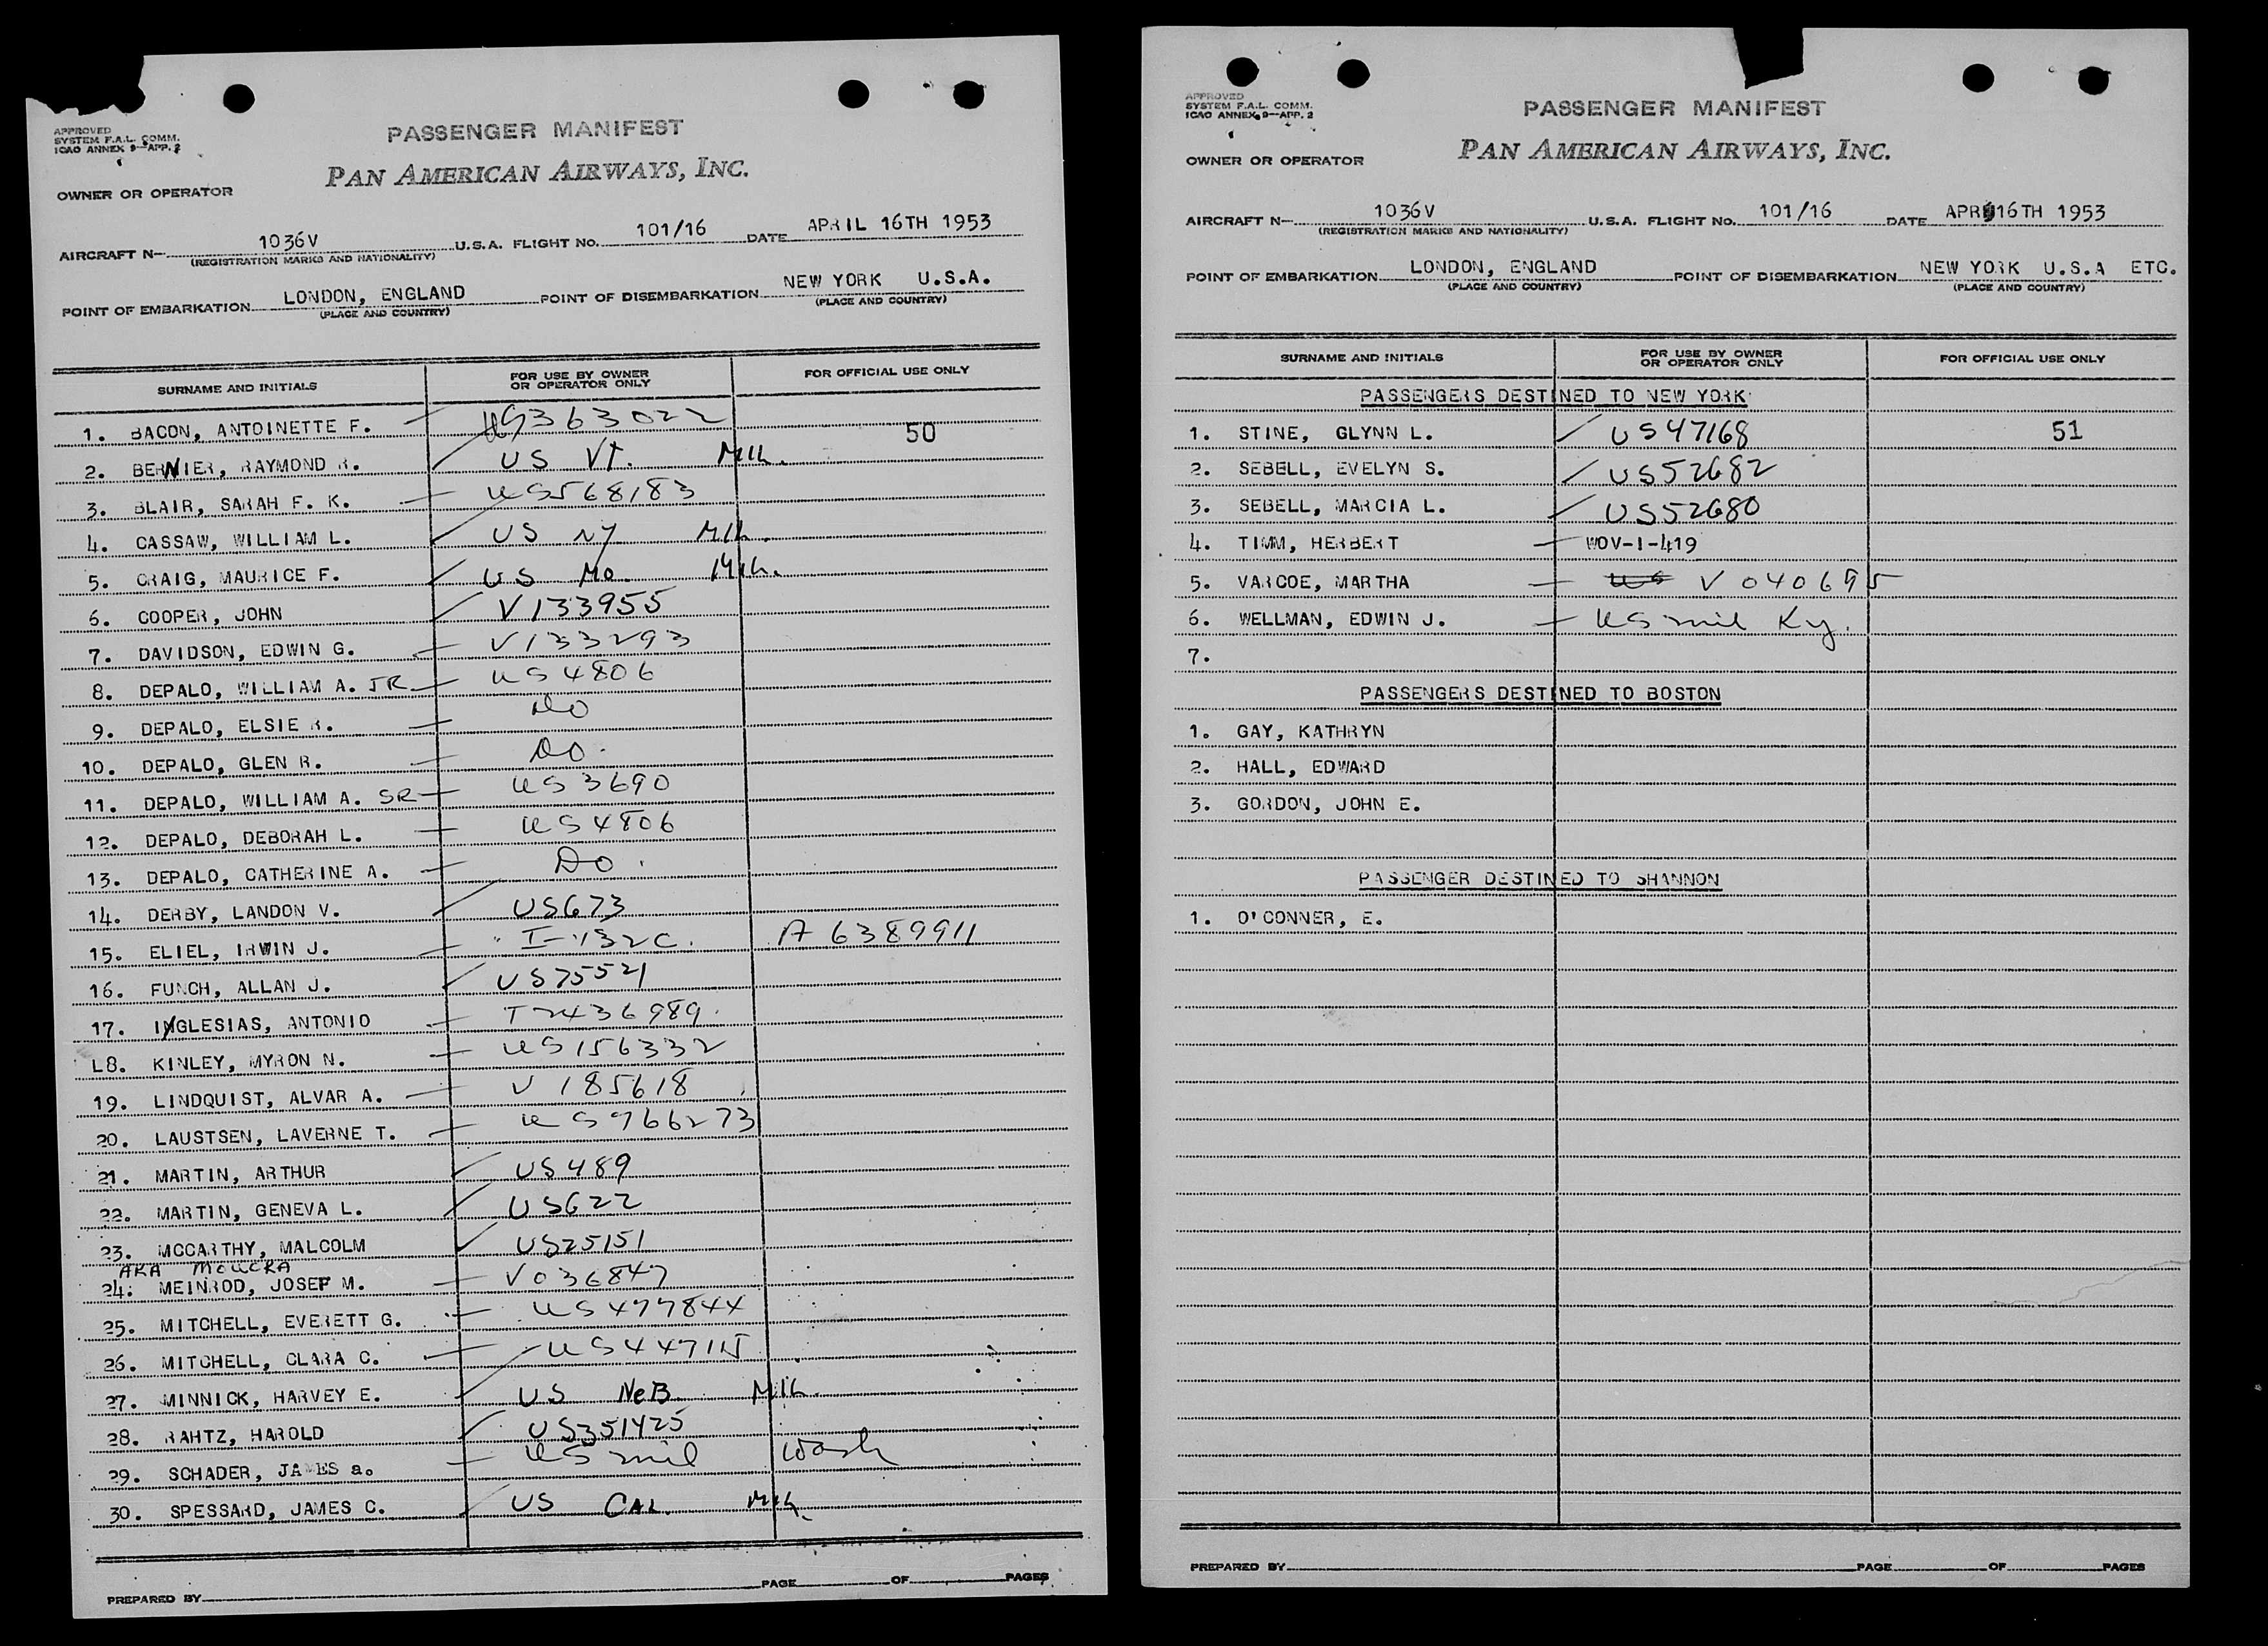 APPROVED
SYSTEM F.A.L. COMM.
ICAO ANNEX 9—APP. 2
PASSENGER MANIFEST
PAN AMERICAN AIRWAYS, INC.
OWNER OR OPERATOR
AIRCRAFT N— 1036V U.S.A. FLIGHT NO. 101/16 DATE APRIL 16TH 1953
(REGISTRATION MARKS AND NATIONALITY)
POINT OF EMBARKATION LONDON, ENGLAND POINT OF DISEMBARKATION NEW YORK U.S.A.
(PLACE AND COUNTRY) (PLACE AND COUNTRY)
SURNAME AND INITIALS FOR USE BY OWNER OR OPERATOR ONLY FOR OFFICIAL USE ONLY
1. BACON, ANTOINETTE F. — US363022 50
2. BERNIER, RAYMOND R. US Vt. Mil.
3. BLAIR, SARAH F. K. — US568183
4. CASSAW, WILLIAM L. US NY Mil.
5. CRAIG, MAURICE F. US Mo. Mil.
6. COOPER, JOHN V133955
7. DAVIDSON, EDWIN G. — V133293
8. DEPALO, WILLIAM A. JR — US4806
9. DEPALO, ELSIE R. — DO
10. DEPALO, GLEN R. — DO.
11. DEPALO, WILLIAM A. SR — US3690
12. DEPALO, DEBORAH L. — US4806
13. DEPALO, CATHERINE A. — DO.
14. DERBY, LANDON V. US673
15. ELIEL, IRWIN J. — I-132C. A 6389911
16. FUNCH, ALLAN J. US75521
17. INGLESIAS, ANTONIO — T2436989.
L8. KINLEY, MYRON N. — US156332
19. LINDQUIST, ALVAR A. — V 185618
20. LAUSTSEN, LAVERNE T. — US966273
21. MARTIN, ARTHUR US489
22. MARTIN, GENEVA L. US622
23. MCCARTHY, MALCOLM US25151
AKA MOUCKA
24. MEINROD, JOSEF M. — V036847
25. MITCHELL, EVERETT G. — US477844
26. MITCHELL, CLARA C. — US447115
27. MINNICK, HARVEY E. US NeB. Mil.
28. RAHTZ, HAROLD US351425
29. SCHADER, JAMES a. — US mil Wash
30. SPESSARD, JAMES C. US CAL. Mil.
PREPARED BY PAGE OF PAGES
APPROVED
SYSTEM F.A.L. COMM.
ICAO ANNEX 9—APP. 2
PASSENGER MANIFEST
PAN AMERICAN AIRWAYS, INC.
OWNER OR OPERATOR
AIRCRAFT N— 1036V U.S.A. FLIGHT NO. 101/16 DATE APR 16TH 1953
(REGISTRATION MARKS AND NATIONALITY)
POINT OF EMBARKATION LONDON, ENGLAND POINT OF DISEMBARKATION NEW YORK U.S.A ETC.
(PLACE AND COUNTRY) (PLACE AND COUNTRY)
SURNAME AND INITIALS FOR USE BY OWNER OR OPERATOR ONLY FOR OFFICIAL USE ONLY
PASSENGERS DESTINED TO NEW YORK
1. STINE, GLYNN L. US47168 51
2. SEBELL, EVELYN S. US52682
3. SEBELL, MARCIA L. US52680
4. TIMM, HERBERT — WOV-1-419
5. VARCOE, MARTHA — US V 040695
6. WELLMAN, EDWIN J. — US mil Ky.
7.
PASSENGERS DESTINED TO BOSTON
1. GAY, KATHRYN
2. HALL, EDWARD
3. GORDON, JOHN E.
PASSENGER DESTINED TO SHANNON
1. O'CONNER, E.
PREPARED BY PAGE OF PAGES